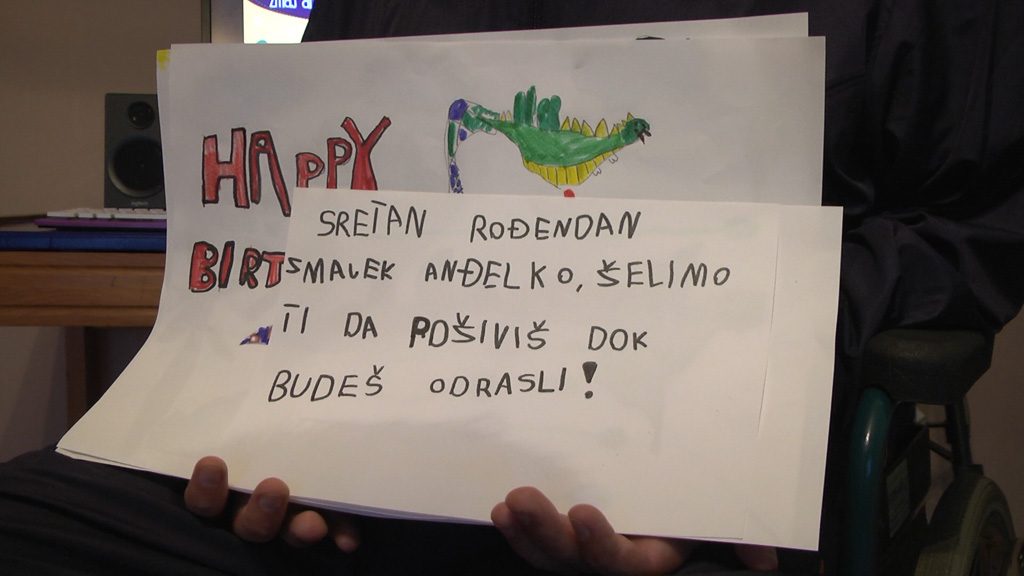 HAPPY
BIRT
SRETAN ROĐENDAN
SMALEK ANĐELKO, ŠELIMO
TI DA POŠIVIŠ DOK
BUDEŠ ODRASLI!